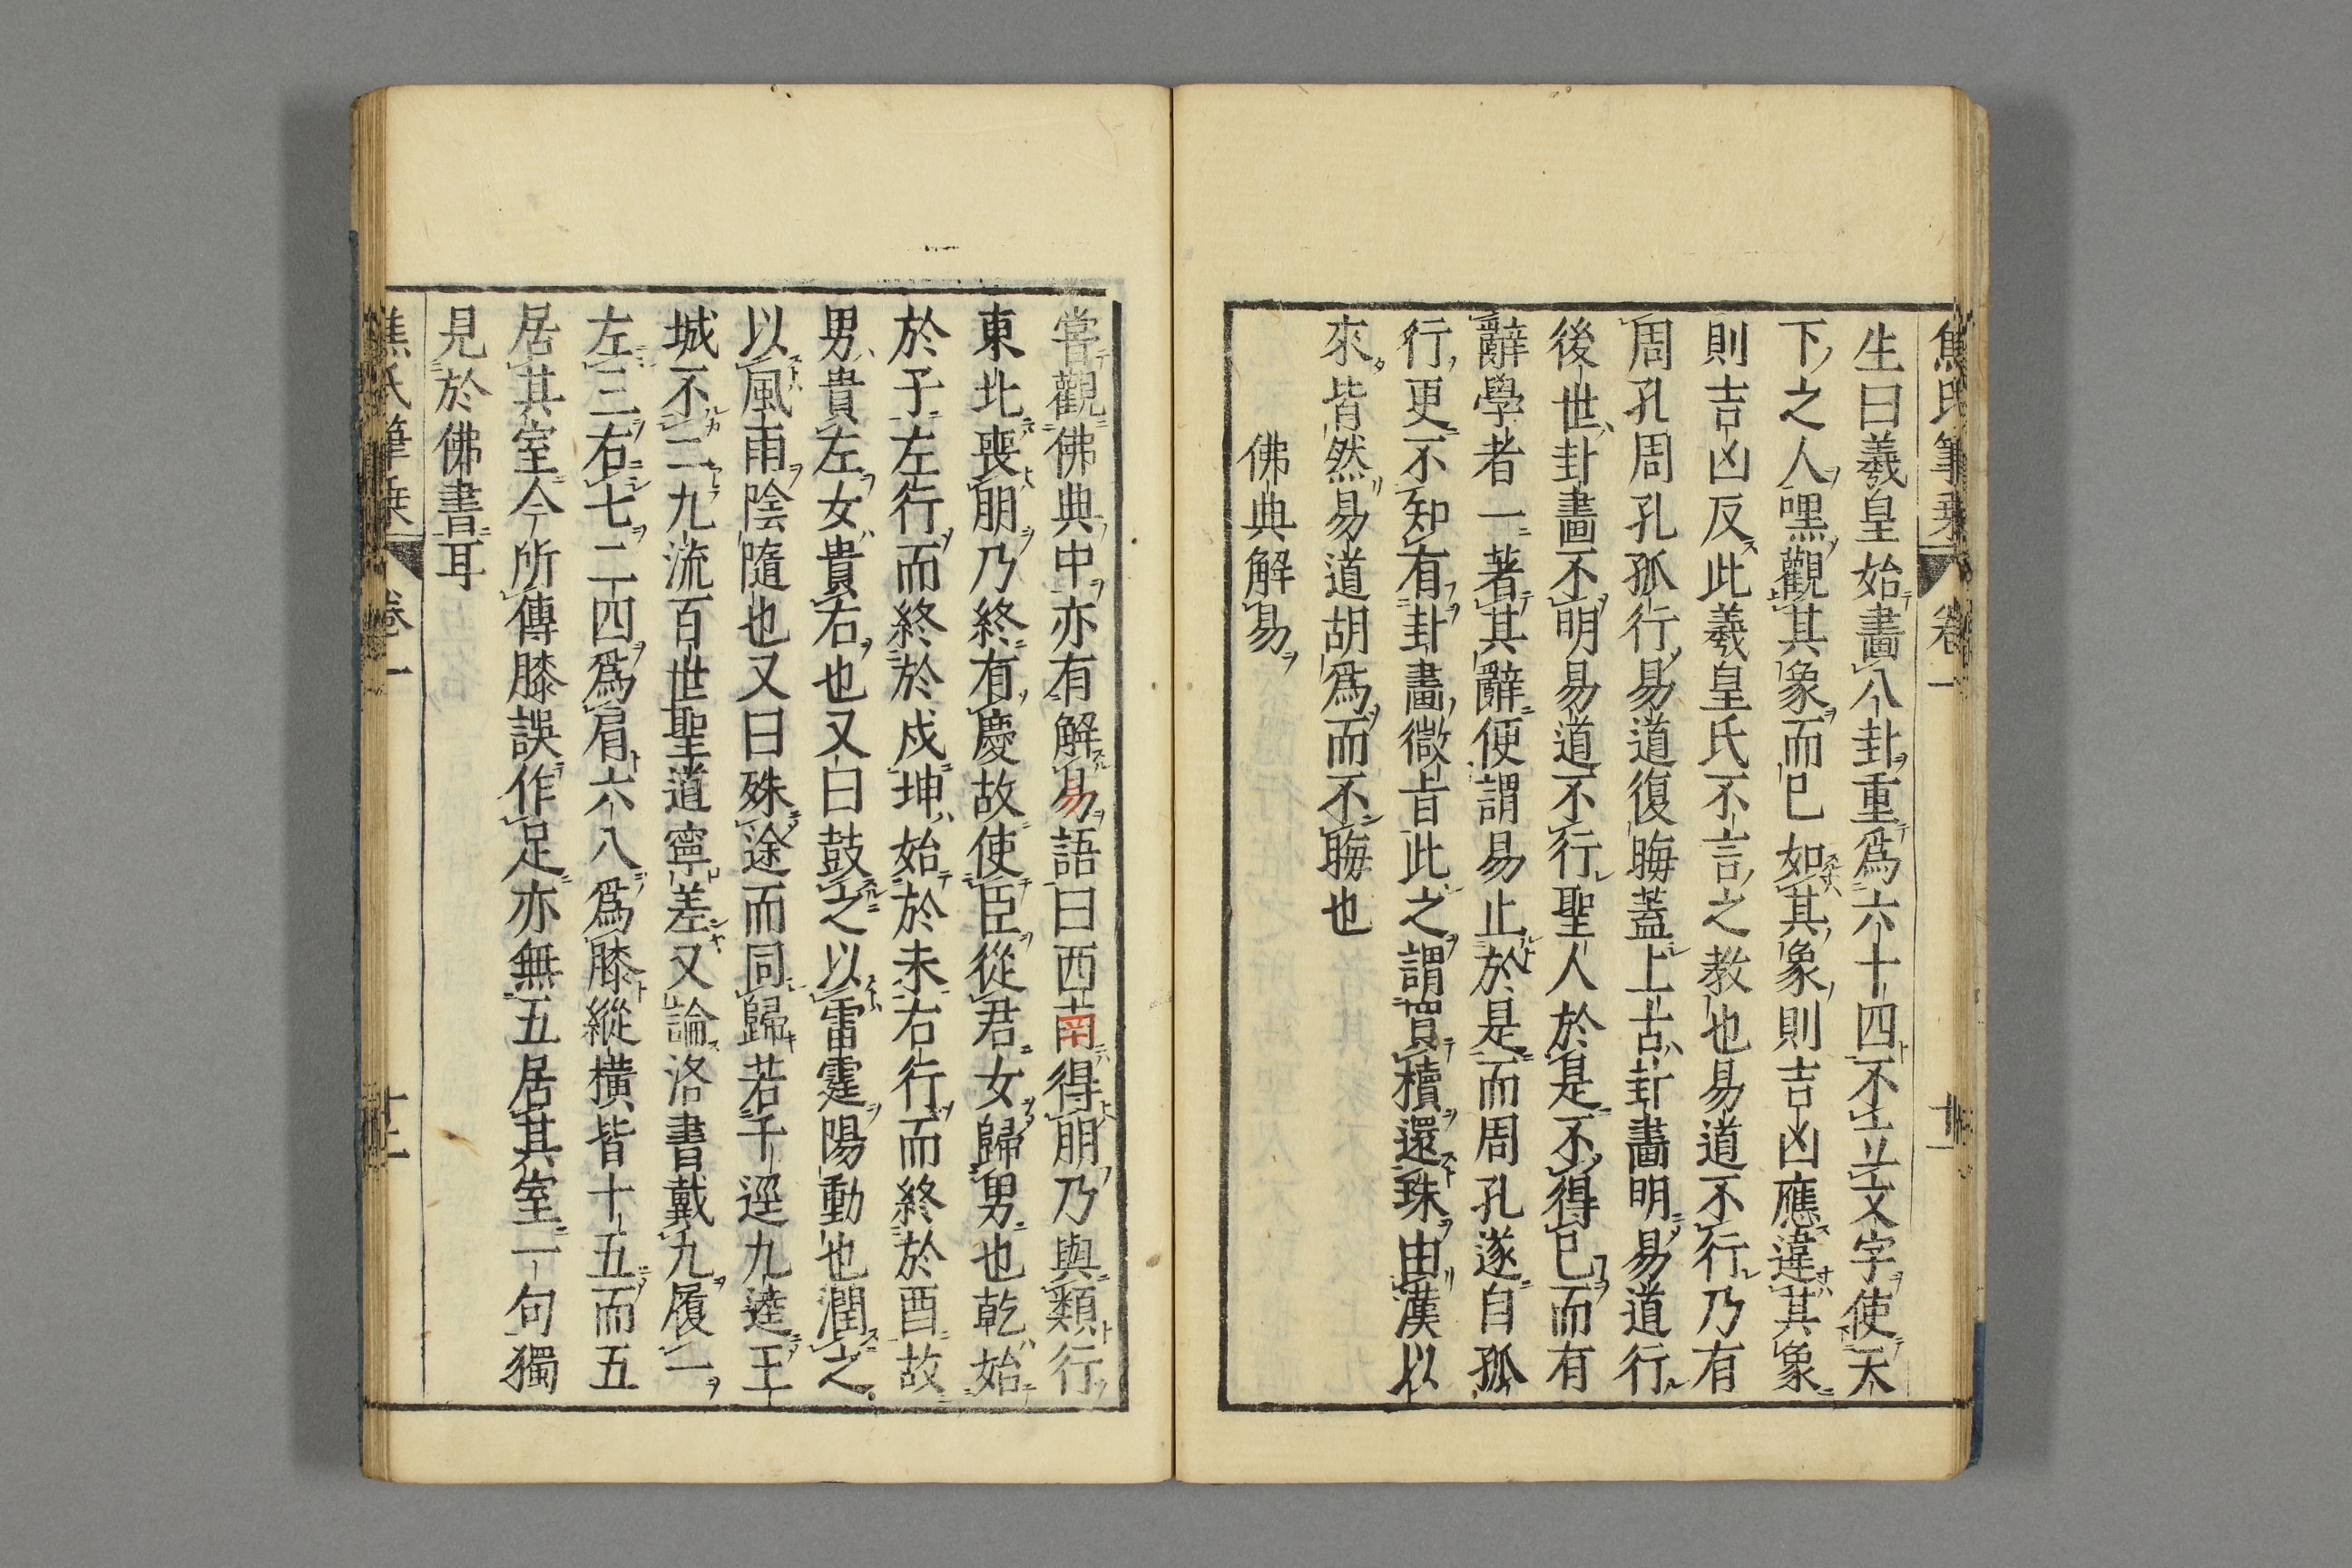 焦氏筆乗 卷一
生曰羲皇始畫八卦重爲六十四不立文字使天
下之人嘿觀其象而已如其象則吉凶應違其象
則吉凶反此羲皇氏不言之教也易道不行乃有
周孔周孔孤行易道復晦蓋上古卦畫明易道行
後世卦畫不明易道不行聖人於是不得已而有
辭學者一著其辭便謂易止於是而周孔遂自孤
行更不知有卦畫微旨此之謂買櫝還珠由漢以
來皆然易道胡爲而不晦也
佛典解易
嘗觀佛典中亦有解易語曰西南得朋乃與類行
東北喪朋乃終有慶故使臣從君女歸男也乾始
於子左行而終於戌坤始於未右行而終於酉故
男貴左女貴右也又曰鼓之以雷霆陽動也潤之
以風雨陰隨也又曰殊途而同歸若千逕九逵王
城不二九流百世聖道寧差又論洛書戴九履一
左三右七二四爲肩六八爲膝縱橫皆十五而五
居其室今所傳膝誤作足亦無五居其室一句獨
見於佛書耳
焦氏筆乗 卷一 十二